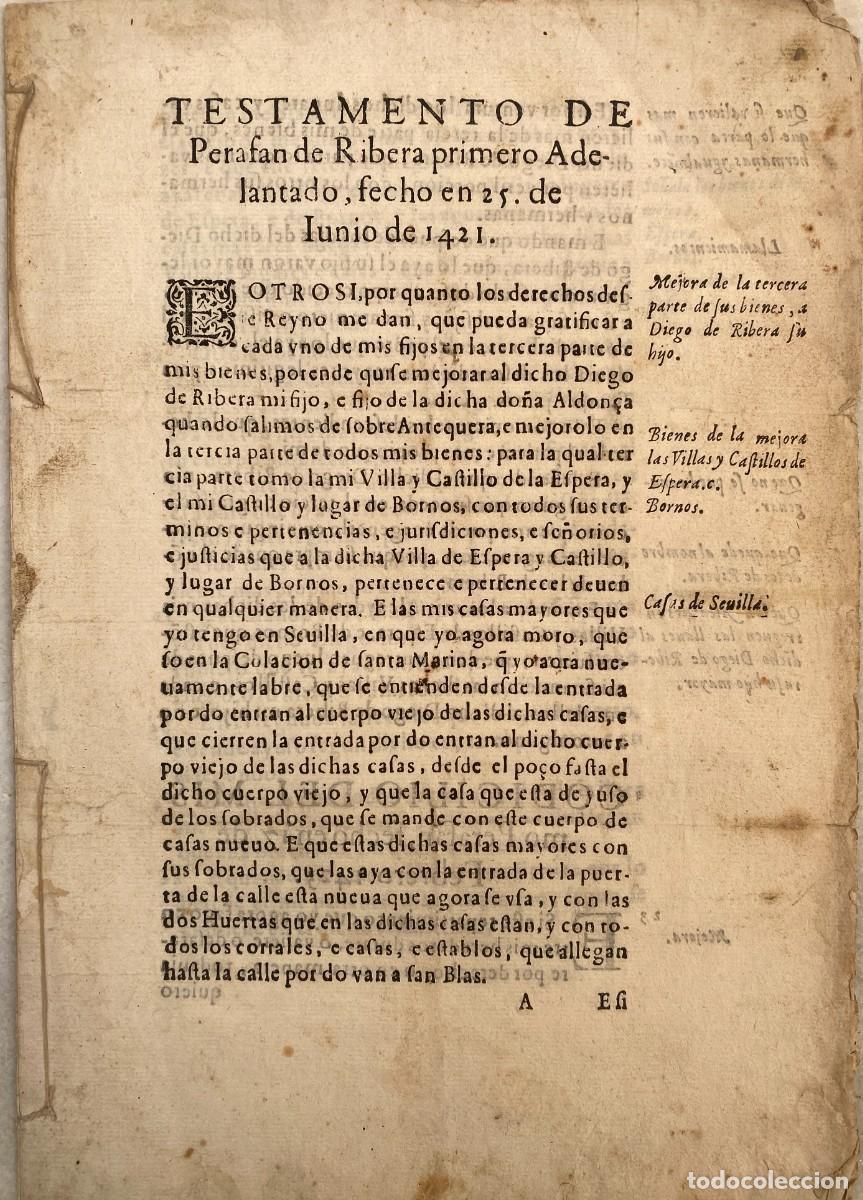 TESTAMENTO DE
Perafan de Ribera primero Ade-
lantado, fecho en 25. de
Iunio de 1421.
EOTROSI, por quanto los derechos des-
te Reyno me dan, que pueda gratificar a
cada vno de mis fijos en la tercera parte de
mis bienes, porende quise mejorar al dicho Diego
de Ribera mi fijo, e fijo de la dicha doña Aldonça
quando salimos de sobre Antequera, e mejorolo en
la tercia parte de todos mis bienes: para la qual ter
cia parte tomo la mi Villa y Castillo de la Espera, y
el mi Castillo y lugar de Bornos, con todos sus ter-
minos e pertenencias, e jurisdiciones, e señorios,
e justicias que a la dicha Villa de Espera y Castillo,
y lugar de Bornos, pertenece e pertenecer deuen
en qualquier manera. E las mis casas mayores que
yo tengo en Seuilla, en que yo agora moro, que
so en la Colacion de santa Marina, q̃ yo aora nue-
uamente labre, que se entienden desde la entrada
por do entran al cuerpo viejo de las dichas casas, e
que cierren la entrada por do entran al dicho cuer-
po viejo de las dichas casas, desde el poço fasta el
dicho cuerpo viejo, y que la casa que esta de juso
de los sobrados, que se mande con este cuerpo de
casas nueuo. E que estas dichas casas mayores con
sus sobrados, que las aya con la entrada de la puer-
ta de la calle esta nueua que agora se vsa, y con las
dos Huertas que en las dichas casas estan, y con to-
dos los corrales, e casas, e establos, que allegan
hasta la calle por do van a san Blas.
A Esi
Mejora de la tercera
parte de sus bienes, a
Diego de Ribera su
hijo.
Bienes de la mejora
las Villas y Castillos de
Espera.c.
Bornos.
Casas de Seuilla.
todocoleccion